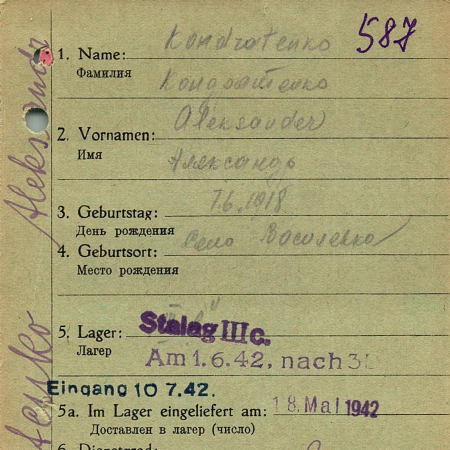 587
1. Name: Kondratenko
Фамилия Кондратенко
2. Vornamen: Aleksander
Имя Александр
3. Geburtstag: 7.6.1918
День рождения
4. Geburtsort: Село Василевка
Место рождения
5. Lager: Stalag III c.
Лагер Am 1.6.42, nach 3
Eingang 10 7.42.
5a. Im Lager eingeliefert am: 18. Mai 1942
Доставлен в лагер (число)
6. Dienstgrad: